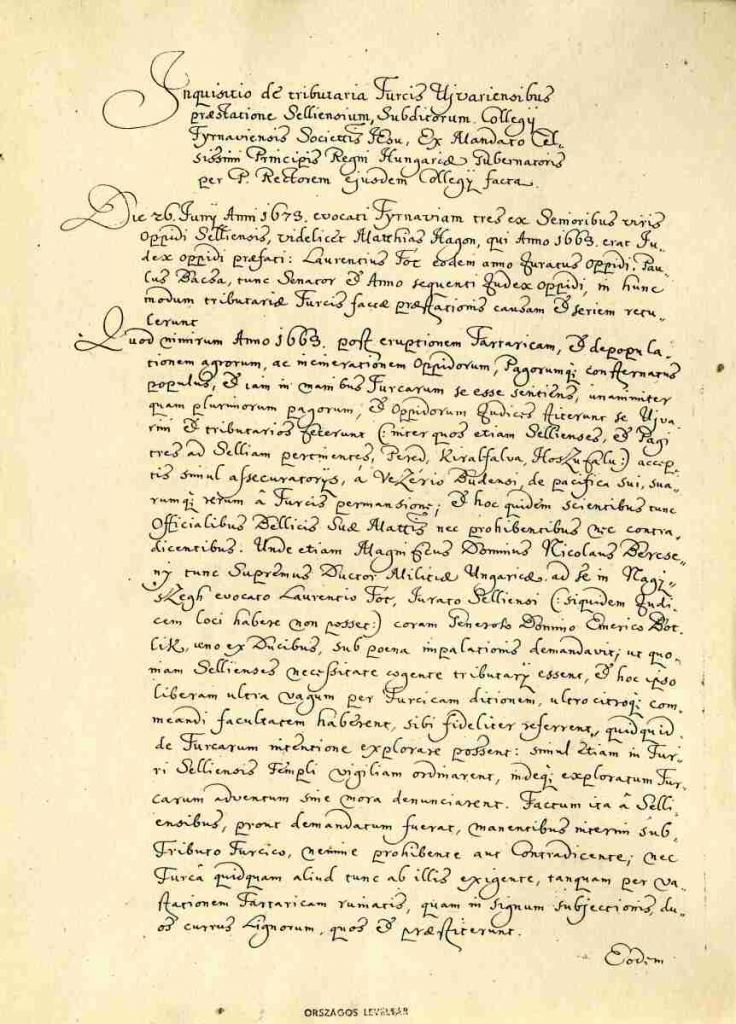 Inquisitio de tributaria Turcis Ujvariensibus
præstatione Selliensium, Subditorum Collegij
Tyrnaviensis Societtis Jesu, Ex Mandato Cel-
sissimi Principis Regni Hungariæ Gubernatoris
per P. Rectorem ejusdem Collegij facta.
Die 26. Junij Anni 1673. evocati Tyrnaviam tres ex Senioribus viris
Oppidi Selliensis, videlicet Matthias Hagon, qui Anno 1663. erat Ju-
dex oppidi præfati: Laurentius Tot eodem anno Juratus Oppidi. Pau-
lus Bacsa, tunc Senator & Anno sequenti Judex Oppidi, in hunc
modum tributariæ Turcis factæ præstationis causam & seriem retu-
lerunt
Quod nimirum Anno 1663. post eruptionem Tartaricam, & depopula-
tionem agrorum, ac incinerationem Oppidorum, Pagorumq; consternatus
populus, & iam in manibus Turcarum se esse sentiens, unanimiter
quam plurimorum pagorum, & Oppidorum Judices stiterunt se Ujva-
rini & tributarios fecerunt (: inter quos etiam Sellienses, & Pagi
tres ad Selliam pertinentes, Pered, Kiralfalva, Hoszufalu:) accep-
tis simul assecuratorijs, â Vezerio Budensi, de pacifica sui, sua-
rumq; rerum â Turcis permansione; & hoc quidem scientibus tunc
Officialibus Bellicis Suæ Mattis nec prohibentibus nec contra-
dicentibus. Unde etiam Magnificus Dominus Nicolaus Bercse-
nij tunc Supremus Ductor Militiæ Ungaricæ ad se in Nagij-
szegh evocato Laurentio Tot, Jurato Selliensi (: siquidem Judi-
cem loci habere non posset:) coram Generoso Domino Emerico Bot-
lik, uno ex Ducibus, sub poena impalationis demandavit; ut quo-
niam Sellienses necessitate cogente tributarij essent, & hoc ipso
liberam ultra vagum per Turcicam ditionem, ultro citroq; com-
meandi facultatem haberent, sibi fideliter referrent, quidquid
de Turcarum intentione explorare possent: simul etiam in Tur-
ri Selliensis Templi vigiliam ordinarent, indeq; exploratum Tur-
carum adventum sine mora denunciarent. Factum ita â Selli-
ensibus, prout demandatum fuerat, manentibus interim sub
Tributo Turcico, nemine prohibente aut Contradicente; nec
Turcâ quidquam aliud tunc ab illis exigente, tanquam per va-
stationem Tartaricam ruinatis, quam in signum subjectionis, du-
os currus Lignorum, quos & præstiterunt.
Eodem
ORSZÁGOS LEVÉLTÁR